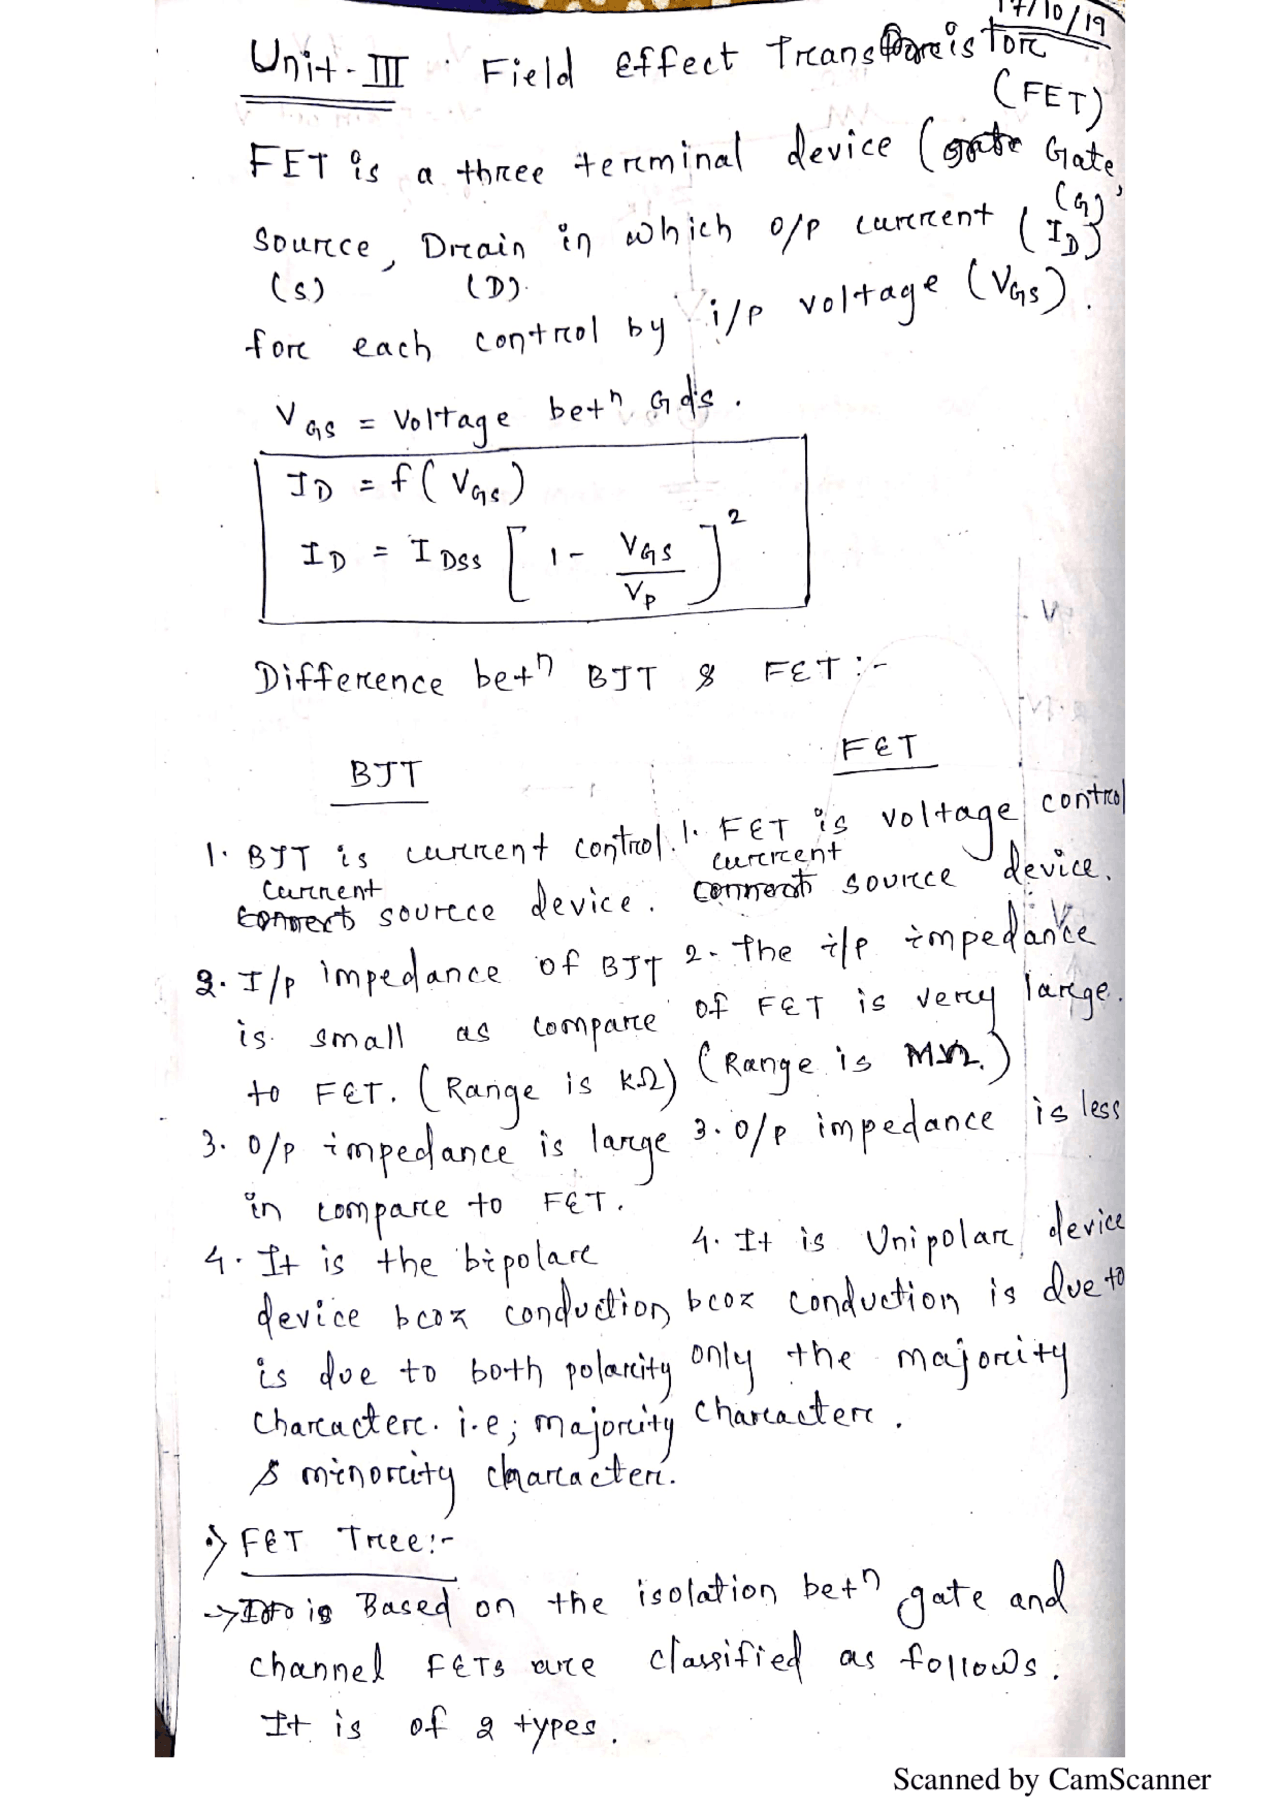 17/10/19
Unit-III : Field Effect Transistor
(FET)
FET is a three terminal device (Gate,
(G)
Source, Drain in which o/p current (ID)
(S) (D).
for each control by i/p voltage (VGS).
VGS = Voltage betn G & S.
ID = f(VGS)
ID = IDSS [1 - VGS/VP]²
Difference betn BJT & FET :-
BJT
FET
1. BJT is current control.
current source device.
2. I/p impedance of BJT
is small as compare
to FET. (Range is KΩ)
3. O/p impedance is large
in compare to FET.
4. It is the bipolar
device bcoz conduction
is due to both polarity
character. i.e; majority
& minority character.
1. FET is voltage control
current source device.
2. The i/p impedance
of FET is very large.
(Range is MΩ.)
3. O/p impedance is less
4. It is Unipolar device
bcoz conduction is due to
only the majority
character.
FET Tree:-
→ Based on the isolation betn gate and
channel FETs are classified as follows.
It is of 2 types.
Scanned by CamScanner